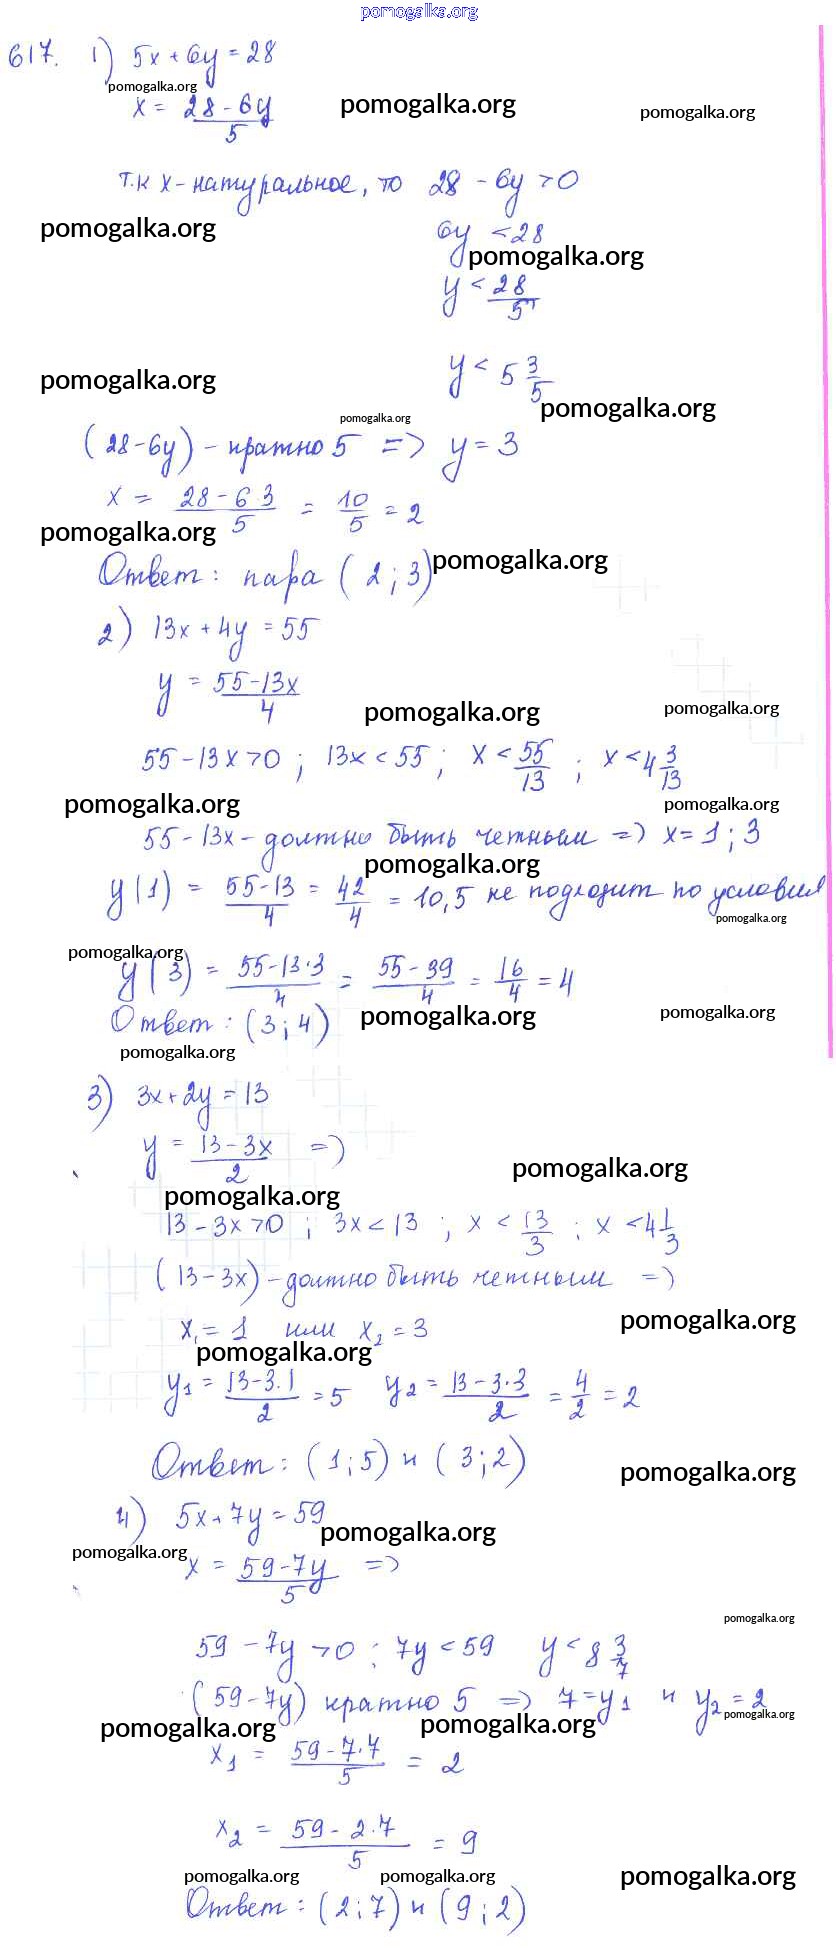 pomogalka.org
617. 1) 5x + 6y = 28
pomogalka.org
x = (28 - 6y)/5 pomogalka.org pomogalka.org
т.к x - натуральное, то 28 - 6y > 0
pomogalka.org 6y < 28
pomogalka.org
y < 28/5
pomogalka.org y < 5 3/5
pomogalka.org
pomogalka.org
(28 - 6y) - кратно 5 => y = 3
x = (28 - 6·3)/5 = 10/5 = 2
pomogalka.org
Ответ: пара (2; 3) pomogalka.org
2) 13x + 4y = 55
y = (55 - 13x)/4
pomogalka.org pomogalka.org
55 - 13x > 0 ; 13x < 55 ; x < 55/13 ; x < 4 3/13
pomogalka.org pomogalka.org
55 - 13x - должно быть четным => x = 1 ; 3
pomogalka.org
y(1) = (55 - 13)/4 = 42/4 = 10,5 не подходит по условия
pomogalka.org
pomogalka.org
y(3) = (55 - 13·3)/4 = (55 - 39)/4 = 16/4 = 4
Ответ: (3; 4) pomogalka.org pomogalka.org
pomogalka.org
3) 3x + 2y = 13
y = (13 - 3x)/2 =>
pomogalka.org
pomogalka.org
13 - 3x > 0 ; 3x < 13 ; x < 13/3 ; x < 4 1/3
(13 - 3x) - должно быть четным =>
x₁ = 1 или x₂ = 3 pomogalka.org
pomogalka.org
y₁ = (13 - 3·1)/2 = 5 y₂ = (13 - 3·3)/2 = 4/2 = 2
Ответ: (1; 5) и (3; 2) pomogalka.org
4) 5x + 7y = 59
pomogalka.org
pomogalka.org x = (59 - 7y)/5 =>
pomogalka.org
59 - 7y > 0 ; 7y < 59 y < 8 3/7
(59 - 7y) кратно 5 => 7 = y₁ и y₂ = 2
pomogalka.org pomogalka.org pomogalka.org
x₁ = (59 - 7·7)/5 = 2
x₂ = (59 - 2·7)/5 = 9
pomogalka.org pomogalka.org pomogalka.org
Ответ: (2; 7) и (9; 2)